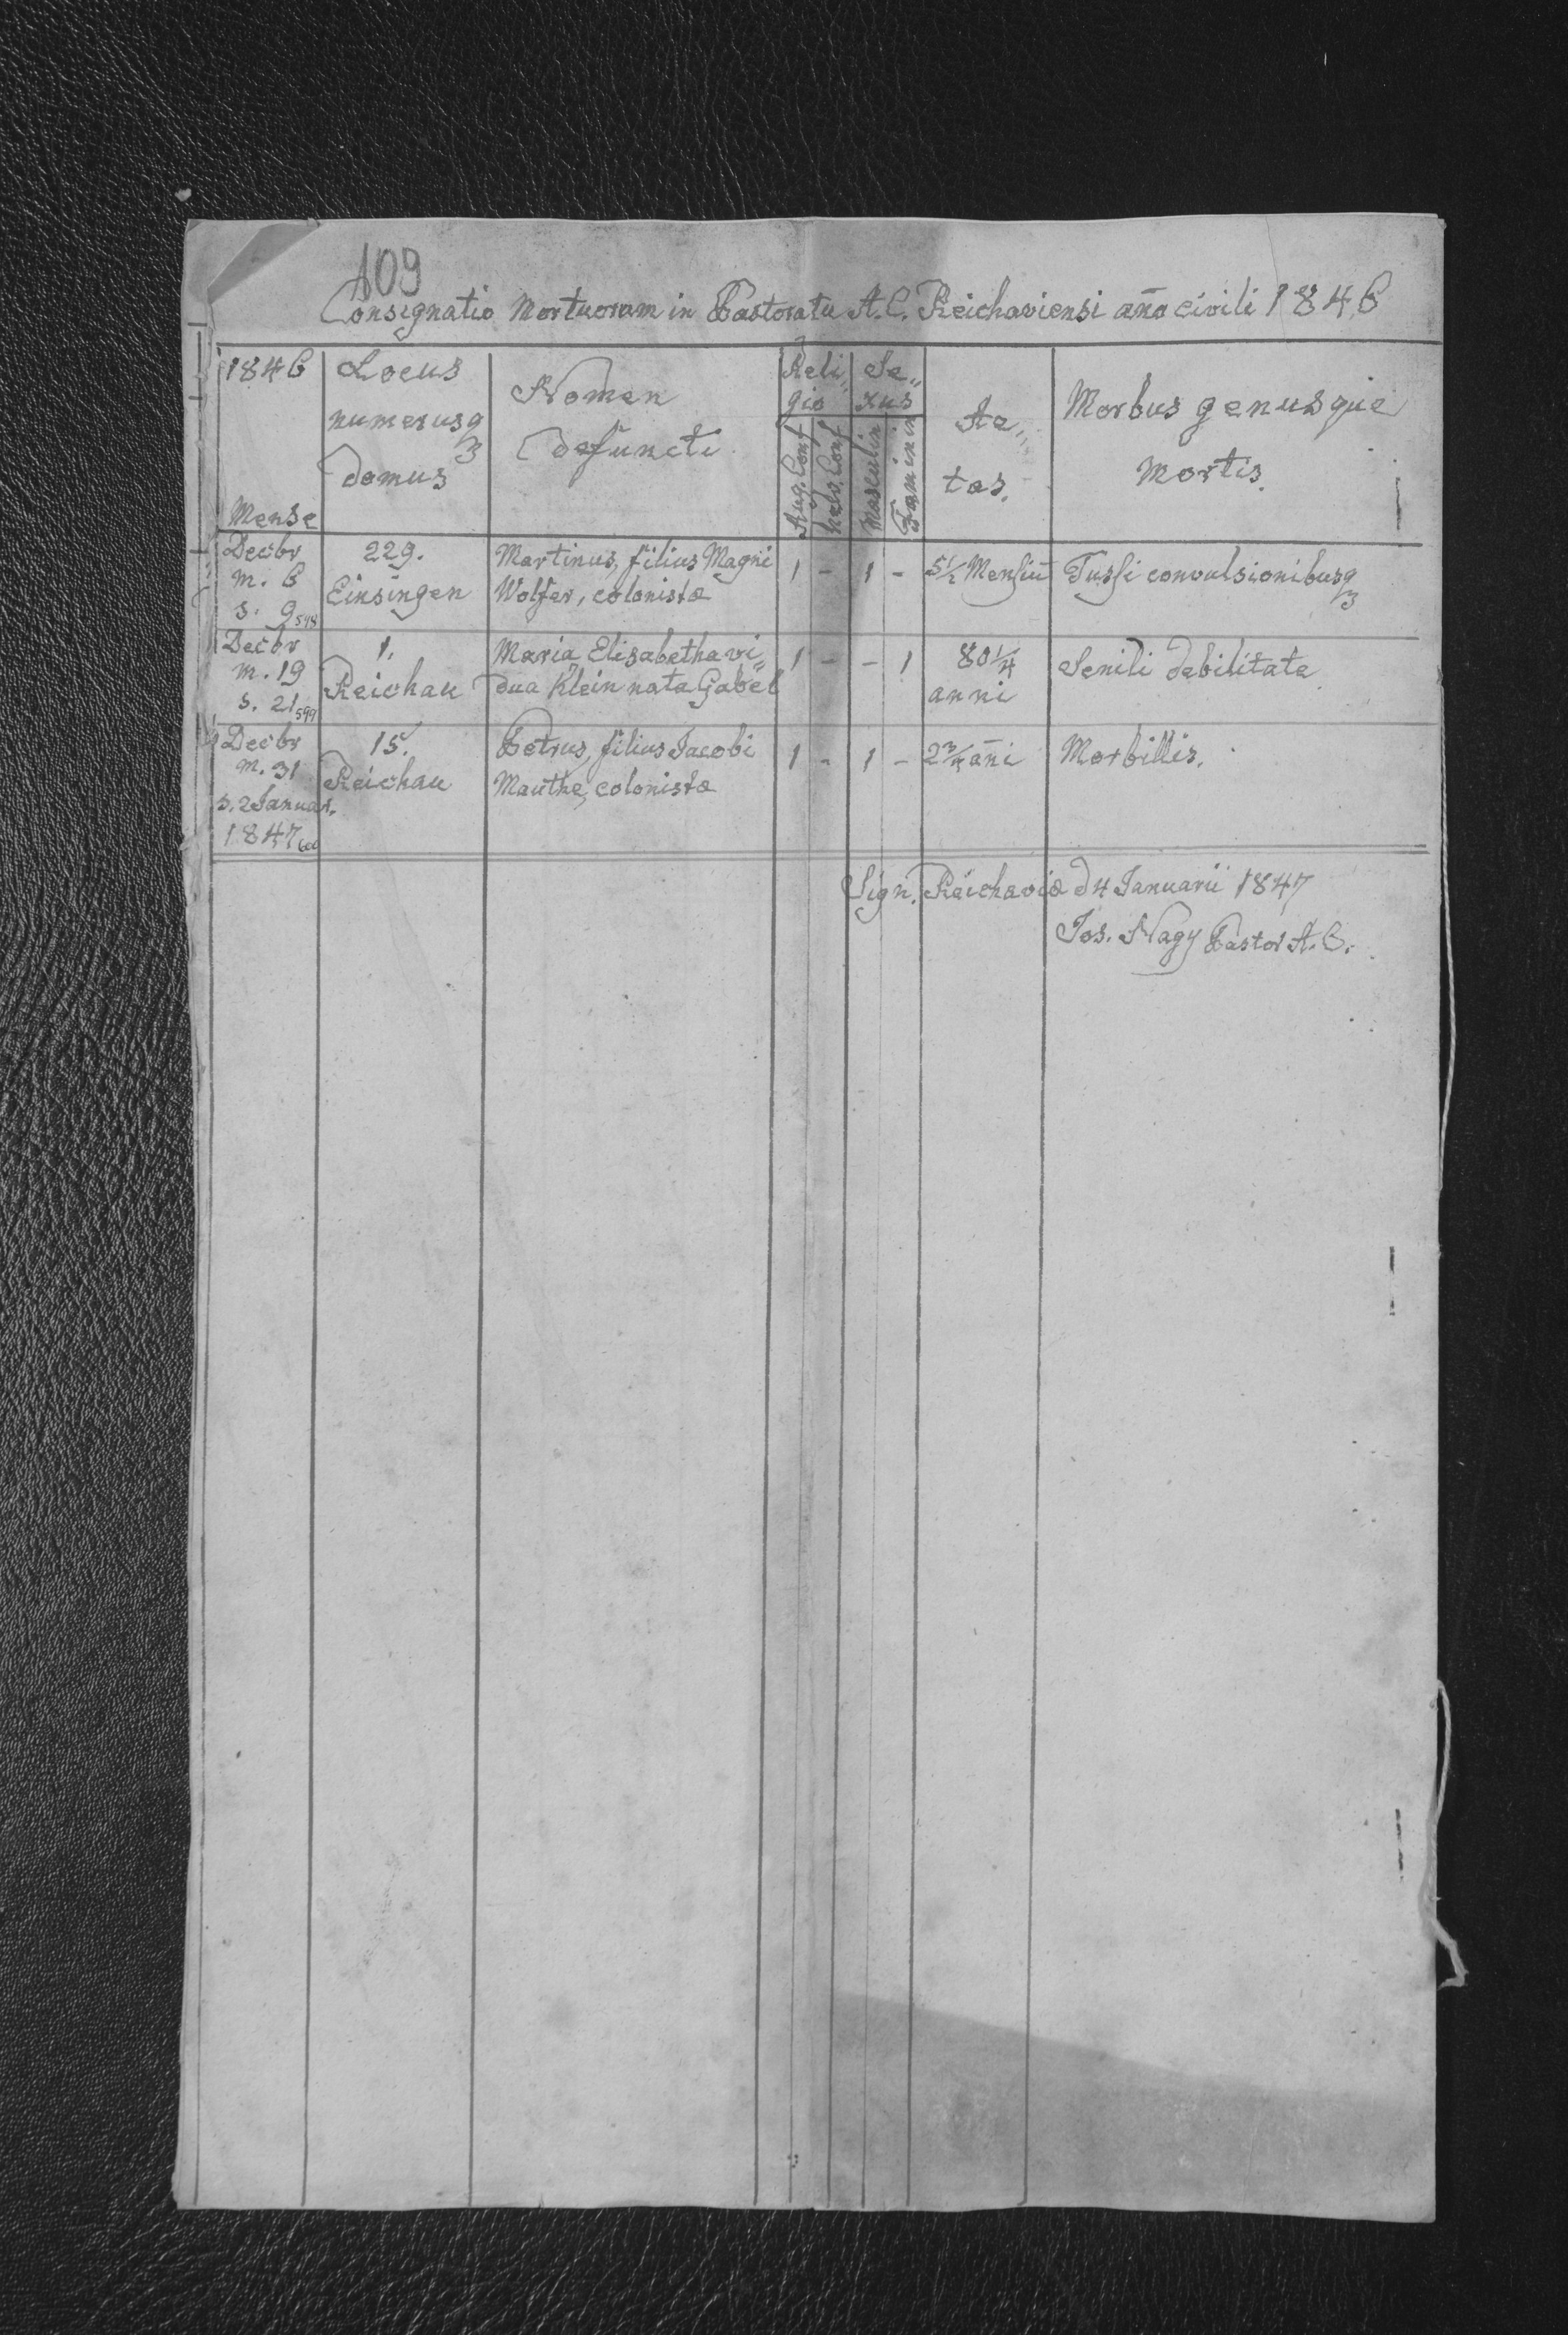 109
Consignatio Mortuorum in Pastoratu A. C. Reichaviensi año civili 1846
1846
Mense
Locus
numerusq3
domus
Nomen
defuncti
Reli„
gio
Aug. Conf
helv. Conf
Se„
xus
Masculin
Faminin
Ae„
tas.
Morbus genusque
Mortis.
Decbr
m. 6
s. 9 598
229.
Einsingen
Martinus, filius Magni
Wolfer, colonistæ
1 - 1 -
5½ Mensiū
Tussi convulsionibusq3
Decbr
m. 19
s. 21 599
1.
Reichau
Maria Elisabetha vi„
dua Klein nata Gabel
1 - - 1
80¼
anni
Senili debilitate
Decbr
m. 31
s. 2 Januar.
1847 600
15.
Reichau
Petrus, filius Jacobi
Mauthe, colonistæ
1 - 1 -
2¾ añi
Morbillis.
Sign. Reichaviæ d 4 Januarii 1847
Jos. Nagy Pastor A. C.